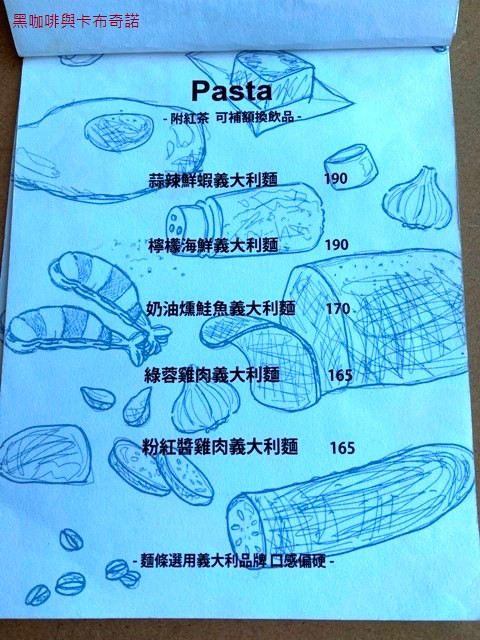 黑咖啡與卡布奇諾
Pasta
- 附紅茶 可補額換飲品 -
蒜辣鮮蝦義大利麵 190
檸檬海鮮義大利麵 190
奶油燻鮭魚義大利麵 170
綠蓉雞肉義大利麵 165
粉紅醬雞肉義大利麵 165
- 麵條選用義大利品牌 口感偏硬 -